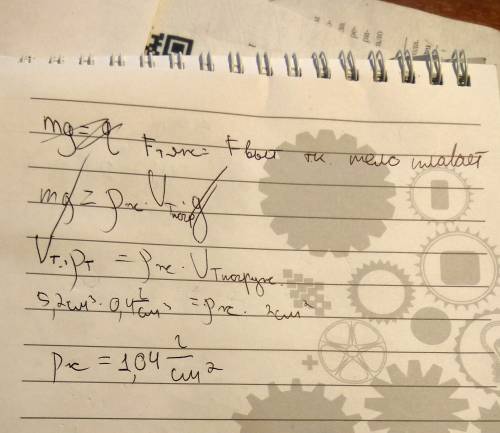 mg = q
Fтяж = Fвыт т.к. тело плавает
mg = ρж · Vт погр g
Vт · ρт = ρж · Vт погруж.
5,2 см³ · 0,4 г/см³ = ρж · 2 см²
ρж = 1,04 г/см²